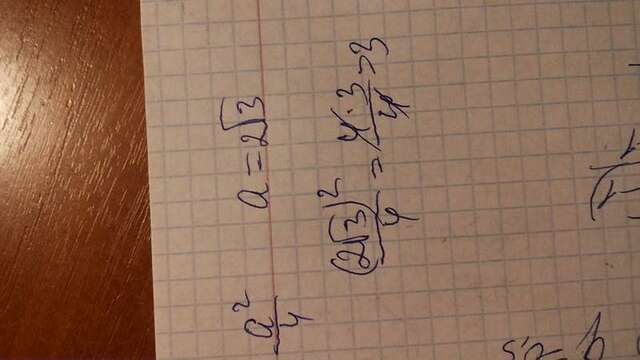 a²/4 a = 2√3
(2√3)²/4 = 4·3/4 = 3